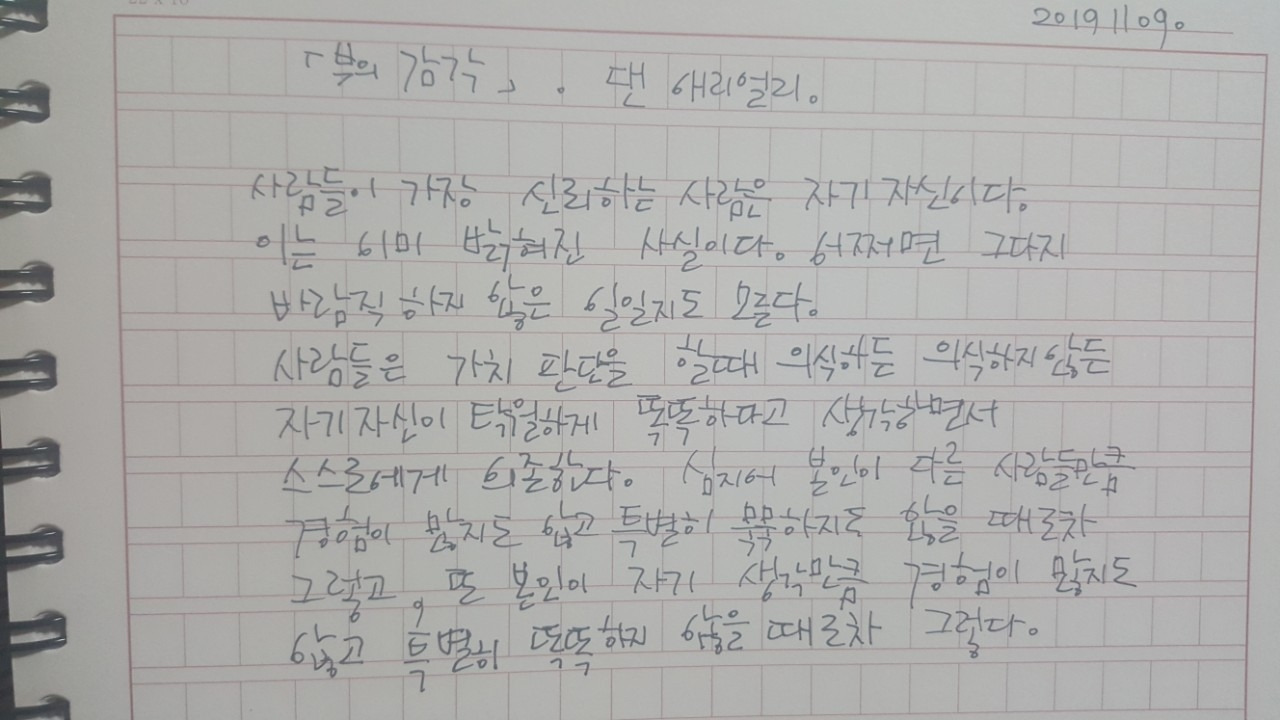 20191109.
「부의 감각」. 댄 애리얼리.
사람들이 가장 신뢰하는 사람은 자기 자신이다.
이는 이미 밝혀진 사실이다. 어쩌면 그다지
바람직하지 않은 일일지도 모른다.
사람들은 가치 판단을 할때 의식하든 의식하지않든
자기자신이 탁월하게 똑똑하다고 생각하면서
스스로에게 의존한다. 심지어 본인이 다른 사람들만큼
경험이 많지도 않고 특별히 똑똑하지도 않을 때조차
그렇고, 또 본인이 자기 생각만큼 경험이 많지도
않고 특별히 똑똑하지 않을때조차 그렇다.